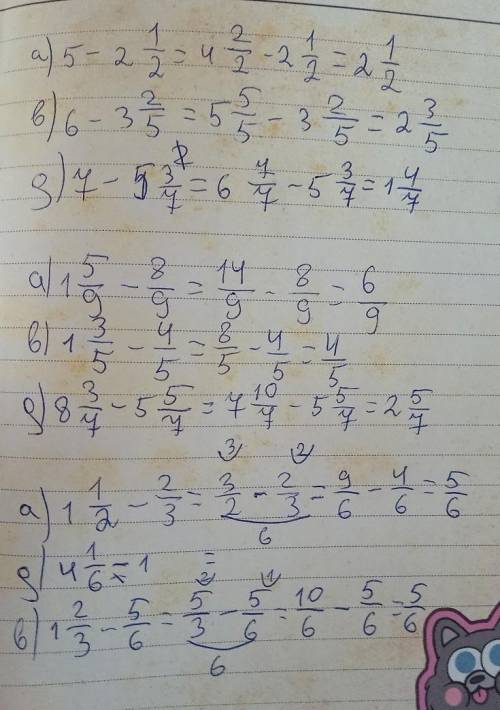 а) 5 - 2 1/2 = 4 2/2 - 2 1/2 = 2 1/2
в) 6 - 3 2/5 = 5 5/5 - 3 2/5 = 2 3/5
д) 7 - 5 3/7 = 6 7/7 - 5 3/7 = 1 4/7
а) 1 5/9 - 8/9 = 14/9 - 8/9 = 6/9
в) 1 3/5 - 4/5 = 8/5 - 4/5 = 4/5
д) 8 3/7 - 5 5/7 = 7 10/7 - 5 5/7 = 2 5/7
3 2
а) 1 1/2 - 2/3 = 3/2 - 2/3 = 9/6 - 4/6 = 5/6
6
д) 4 1/6 - 1 =
2 1
в) 1 2/3 - 5/6 = 5/3 - 5/6 = 10/6 - 5/6 = 5/6
6